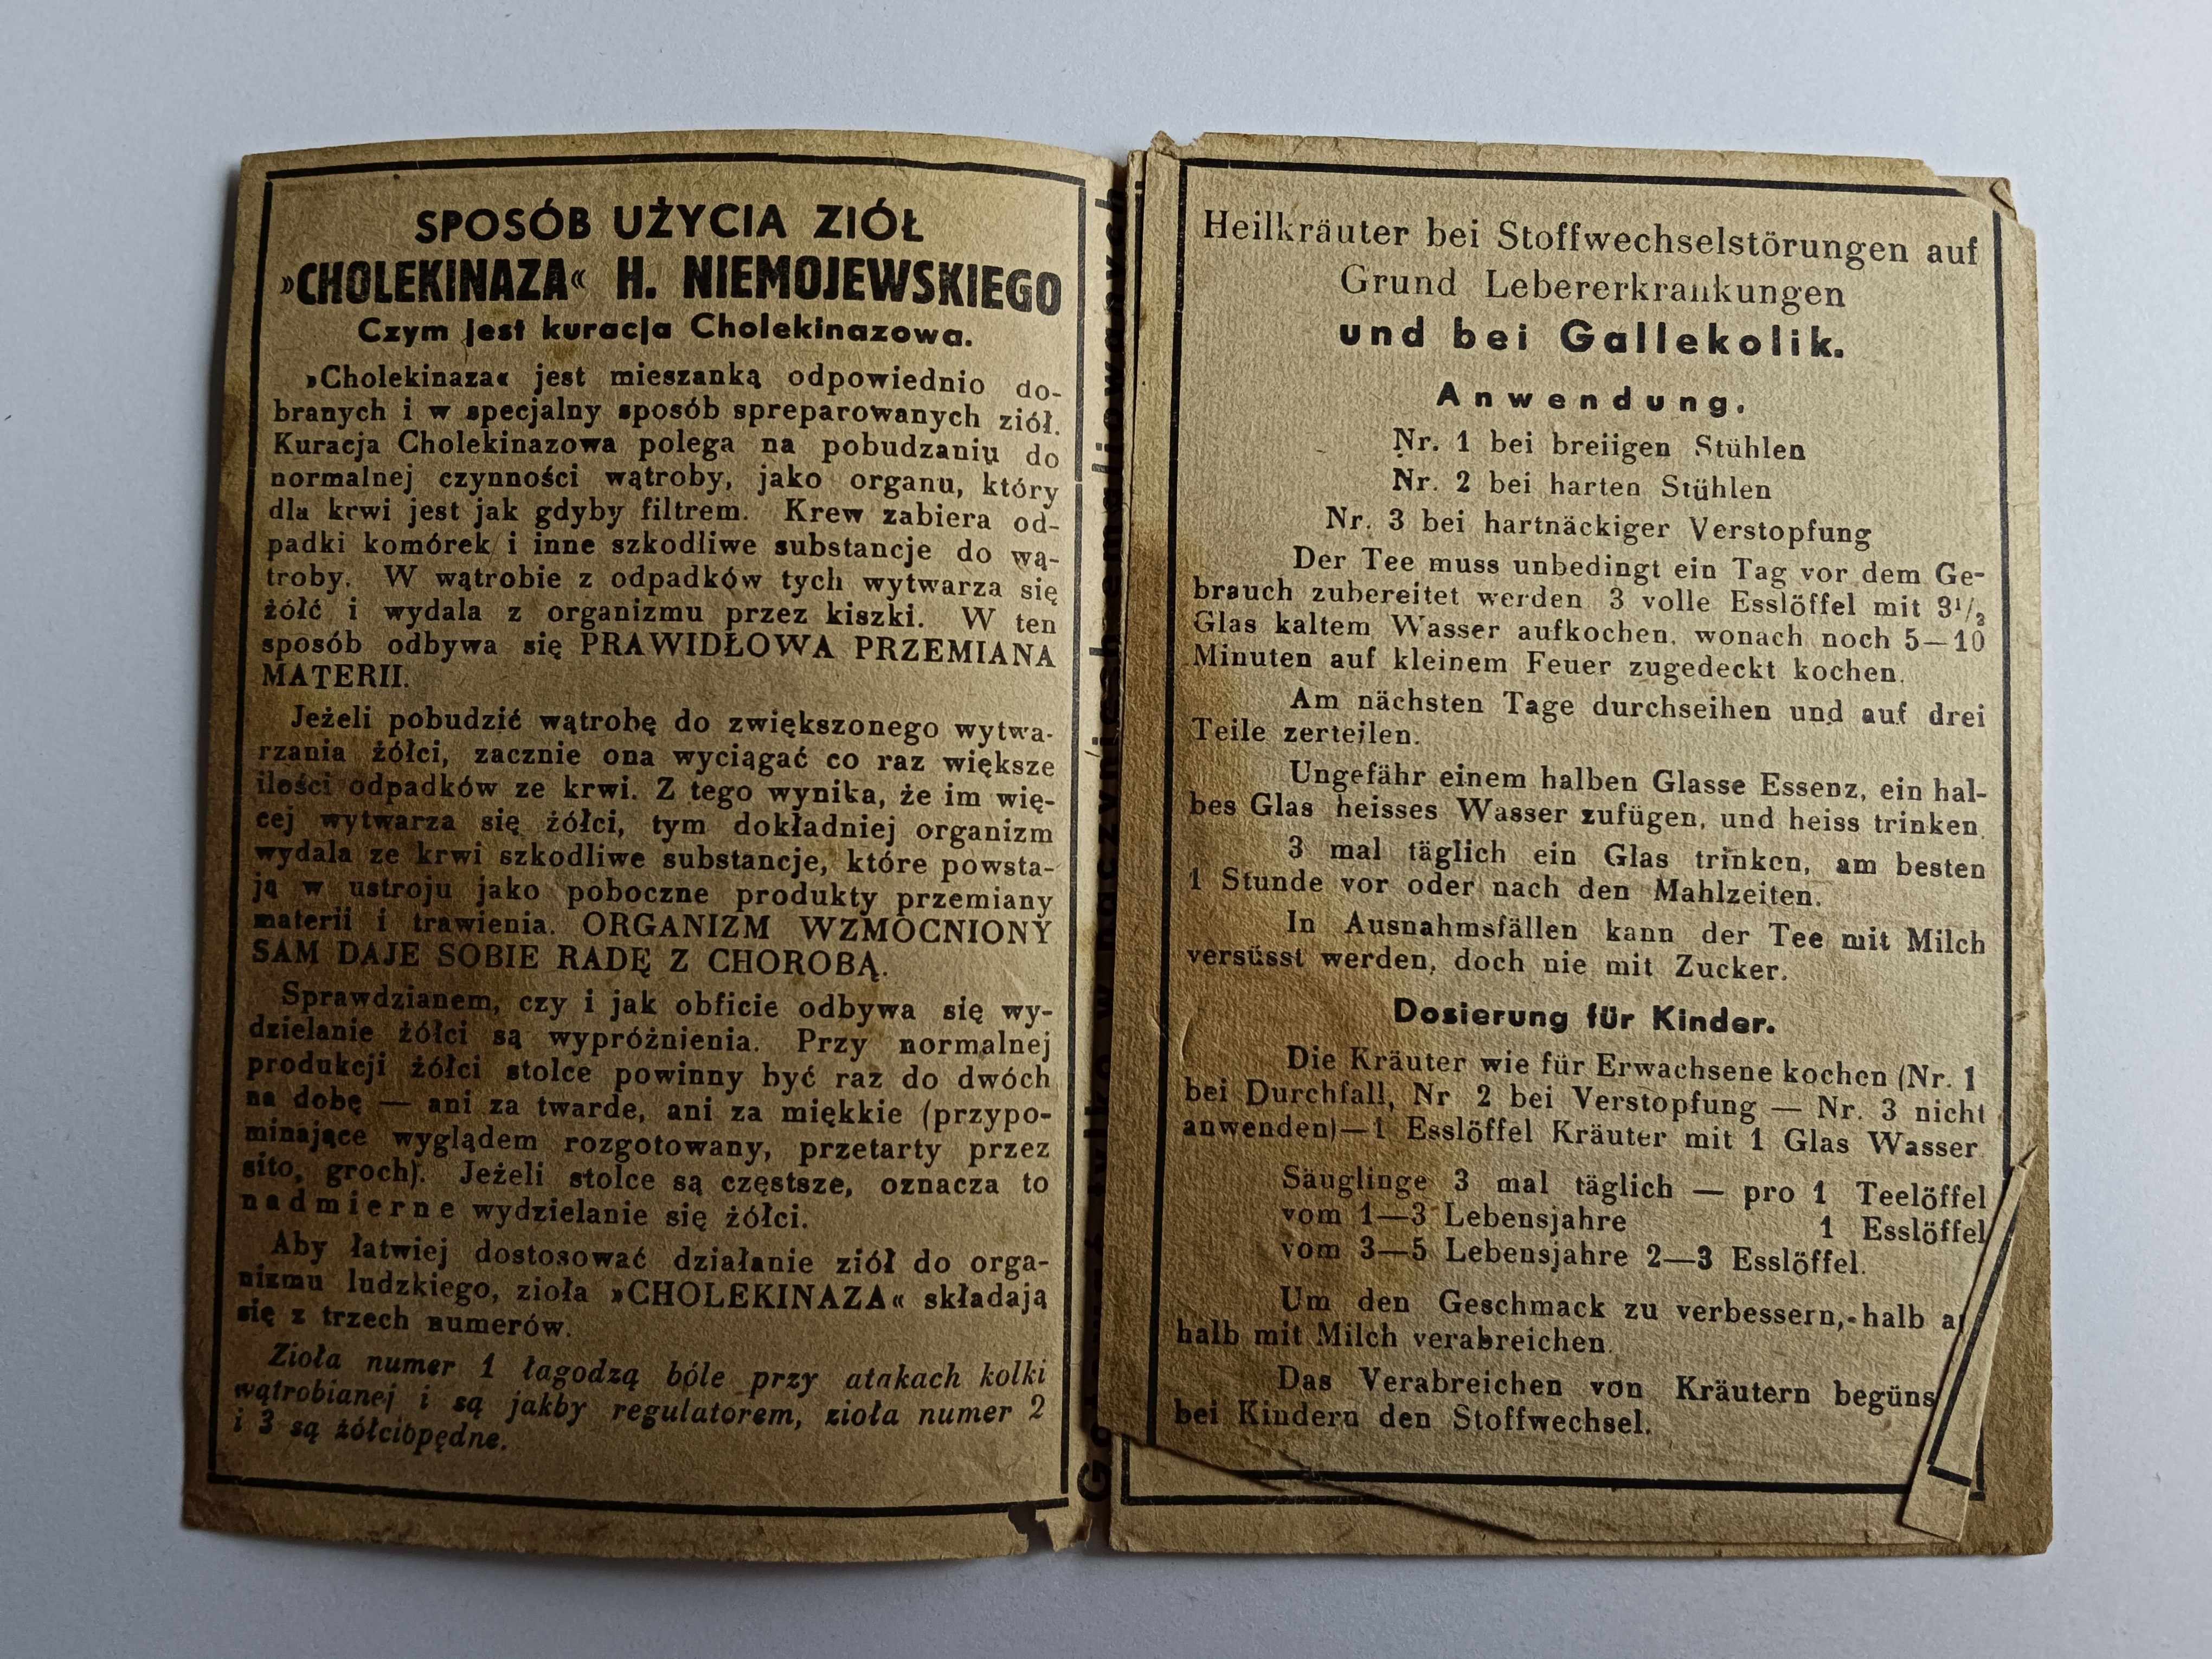 SPOSÓB UŻYCIA ZIÓŁ
»CHOLEKINAZA« H. NIEMOJEWSKIEGO
Czym jest kuracja Cholekinazowa.
»Cholekinaza« jest mieszanką odpowiednio do-
branych i w specjalny sposób spreparowanych ziół.
Kuracja Cholekinazowa polega na pobudzaniu do
normalnej czynności wątroby, jako organu, który
dla krwi jest jak gdyby filtrem. Krew zabiera od-
padki komórek i inne szkodliwe substancje do wą-
troby. W wątrobie z odpadków tych wytwarza się
żółć i wydala z organizmu przez kiszki. W ten
sposób odbywa się PRAWIDŁOWA PRZEMIANA
MATERII.
Jeżeli pobudzić wątrobę do zwiększonego wytwa-
rzania żółci, zacznie ona wyciągać co raz większe
ilości odpadków ze krwi. Z tego wynika, że im wię-
cej wytwarza się żółci, tym dokładniej organizm
wydala ze krwi szkodliwe substancje, które powsta-
ją w ustroju jako poboczne produkty przemiany
materii i trawienia. ORGANIZM WZMOCNIONY
SAM DAJE SOBIE RADĘ Z CHOROBĄ.
Sprawdzianem, czy i jak obficie odbywa się wy-
dzielanie żółci są wypróżnienia. Przy normalnej
produkcji żółci stolce powinny być raz do dwóch
na dobę — ani za twarde, ani za miękkie (przypo-
minające wyglądem rozgotowany, przetarty przez
sito, groch). Jeżeli stolce są częstsze, oznacza to
nadmierne wydzielanie się żółci.
Aby łatwiej dostosować działanie ziół do orga-
nizmu ludzkiego, zioła »CHOLEKINAZA« składają
się z trzech numerów.
Zioła numer 1 łagodzą bóle przy atakach kolki
wątrobianej i są jakby regulatorem, zioła numer 2
i 3 są żółciopędne.
w naczyniach emaliowanych
Heilkräuter bei Stoffwechselstörungen auf
Grund Lebererkrankungen
und bei Gallekolik.
Anwendung.
Nr. 1 bei breiigen Stühlen
Nr. 2 bei harten Stühlen
Nr. 3 bei hartnäckiger Verstopfung
Der Tee muss unbedingt ein Tag vor dem Ge-
brauch zubereitet werden 3 volle Esslöffel mit 3½
Glas kaltem Wasser aufkochen, wonach noch 5—10
Minuten auf kleinem Feuer zugedeckt kochen.
Am nächsten Tage durchseihen und auf drei
Teile zerteilen.
Ungefähr einem halben Glasse Essenz, ein hal-
bes Glas heisses Wasser zufügen, und heiss trinken.
3 mal täglich ein Glas trinken, am besten
1 Stunde vor oder nach den Mahlzeiten.
In Ausnahmsfällen kann der Tee mit Milch
versüsst werden, doch nie mit Zucker.
Dosierung für Kinder.
Die Kräuter wie für Erwachsene kochen (Nr. 1
bei Durchfall, Nr 2 bei Verstopfung — Nr. 3 nicht
anwenden)—1 Esslöffel Kräuter mit 1 Glas Wasser.
Säuglinge 3 mal täglich — pro 1 Teelöffel
vom 1—3 Lebensjahre 1 Esslöffel
vom 3—5 Lebensjahre 2—3 Esslöffel.
Um den Geschmack zu verbessern,-halb a
halb mit Milch verabreichen.
Das Verabreichen von Kräutern begüns
bei Kindern den Stoffwechsel.